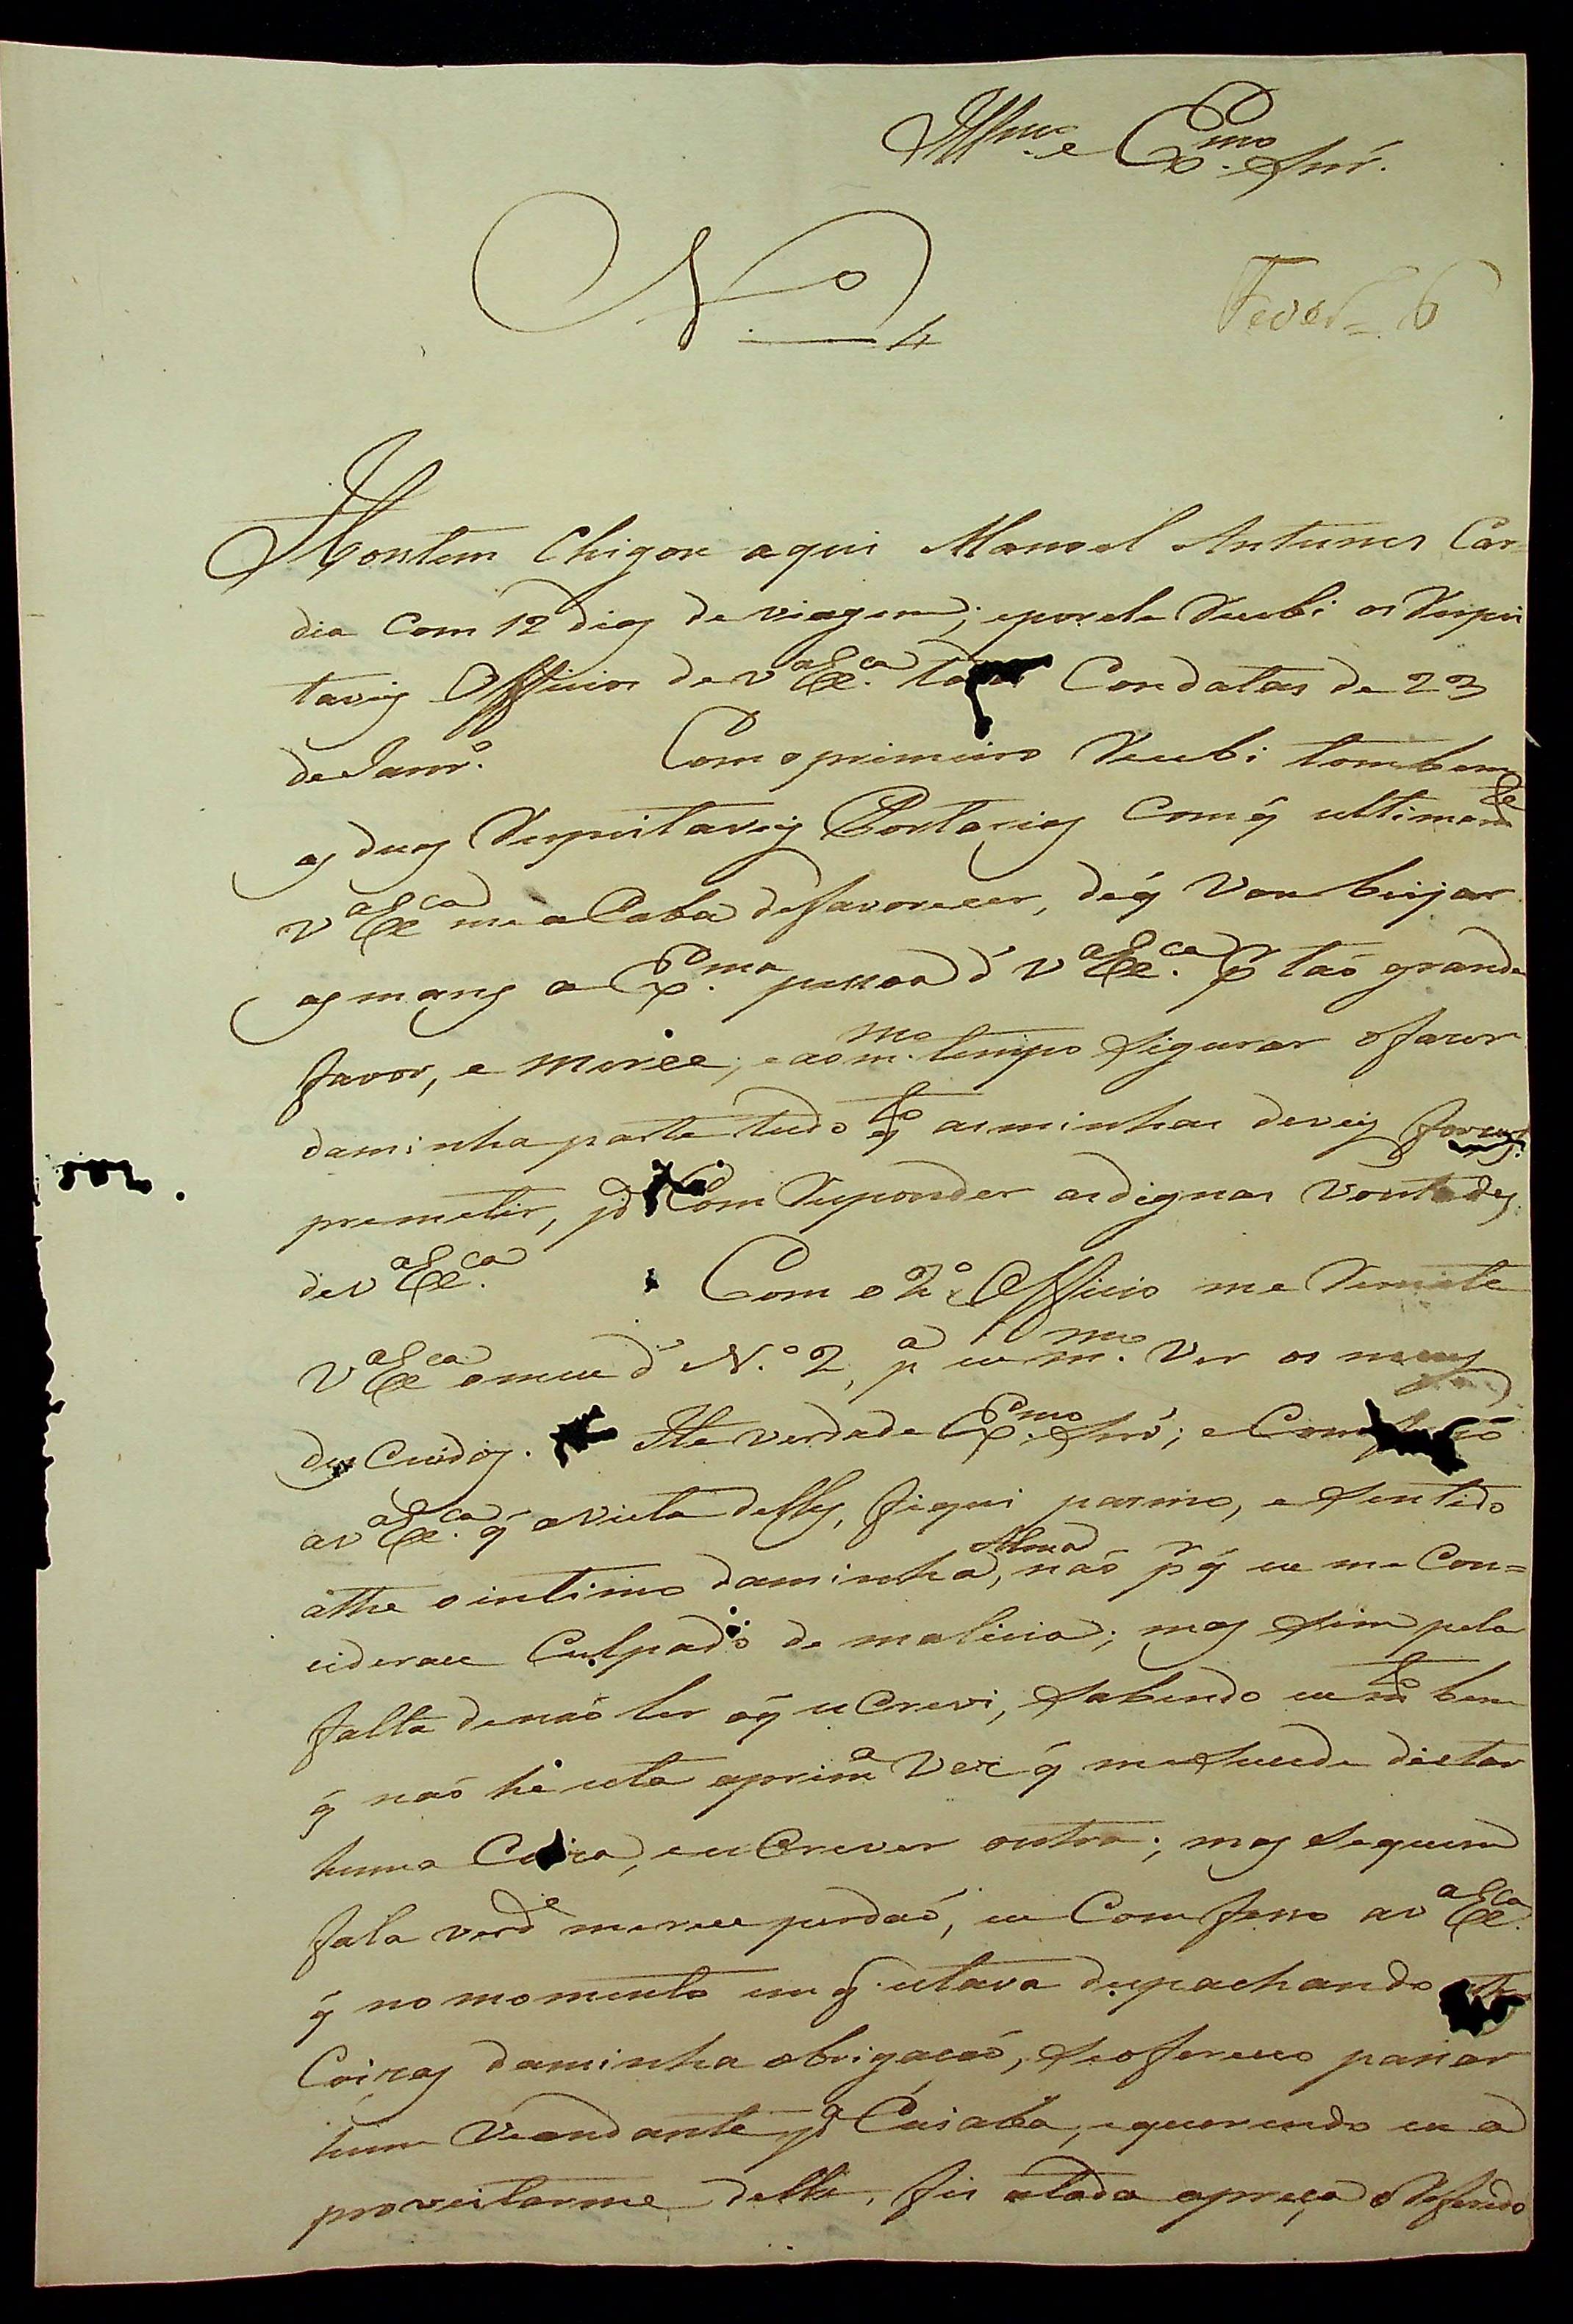 Illmo. e Exmo. Snr.
No. 4
Fever. 6
Hontem Chigou aqui Manoel Antunes Car-
dia com 12 dias de viagem; epor ele Recebi os Respei
taveis Officios de V.a Ex.ca Com datas de 23
de Janr.o Com o primeiro Recebi tambem
as duas Respeitaveis Portarias Com q̃ ultimam.te
V.a Ex.ca me aCaba de favorecer, de q̃ Vou beijar
as mans a Ex.ma pessoa d' V.a Ex.ca p.r taõ grande
favor, e merce; e ao m.mo tempo Sigurar o fazer
daminha parte tudo q.to as minhas deveis forças
premetir, p.a Com Responder as dignas Vontades
de V.a Ex.ca Com o 2.o Officio me Remete
V.a Ex.ca o meu d' N.o 2, p.a eu m.mo Ver os meus
des Cuidos. He verdade Ex.mo Snr'; e
a V.a Ex.ca q̃ a vista delles, fiquei pasmo, e Sentido
athe o intimo daminha Alma, naõ p.r q̃ eu me Con=
ciderace Culpado de malicia; mas Sim pela
falta de naõ ler o q̃ esCrevi, Sabendo eu m.to bem
q̃ naõ hé esta a prim.a Vez q̃ me Sucede dictar
huma Coiza, e esCrever outra; mas Se quem
fala verd.e merece perdaõ, eu Comfesso a V.a Ex.ca
q̃ no momento em q̃ estava despachando
Coizas daminha obrigaçaõ, Se ofereceo pasar
hum Viandante p.a Cuiaba, e querendo eu a
proveitarme delle, fis atoda apreça o Referido